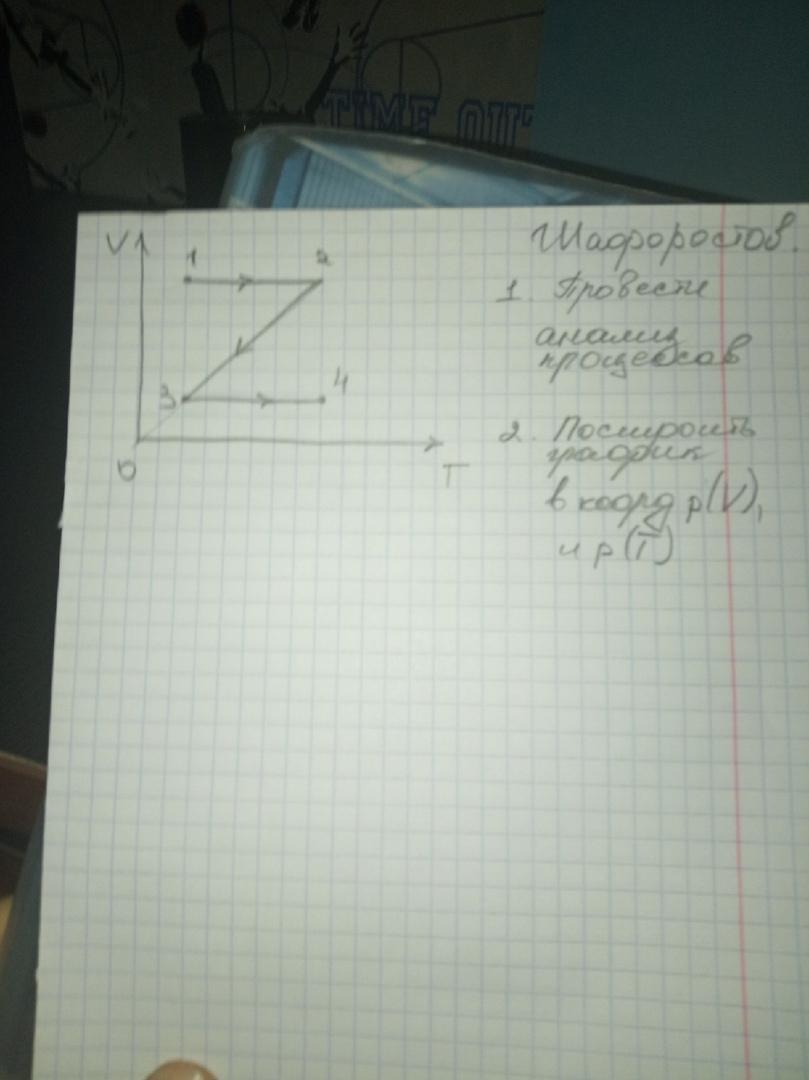 TIME OUT
V
1
2
Шафоростов.
1. Провести
анализ
процессов
3
4
0
T
2. Построить
график
в коорд p(V),
и p(T)